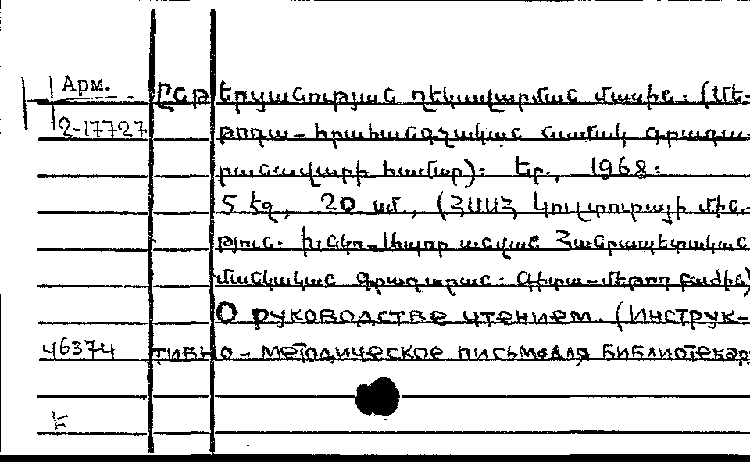 Арм.
Ընթերցանության ղեկավարման մասին. (Մե-
2-17727 թոդա-հրահանգչական նամակ գրադա-
րանավարի համար): Եր., 1968:
5 էջ, 20 սմ., (ՀՍՍՀ Կուլտուրայի մին.-
թյուն. Խնկո-Ապոր անվան Հանրապետական
մանկական գրադարան. Գիտա-մեթոդ բաժին)
О руководстве чтением. (Инструк-
46374 тивно-методическое письмо для библиотекар